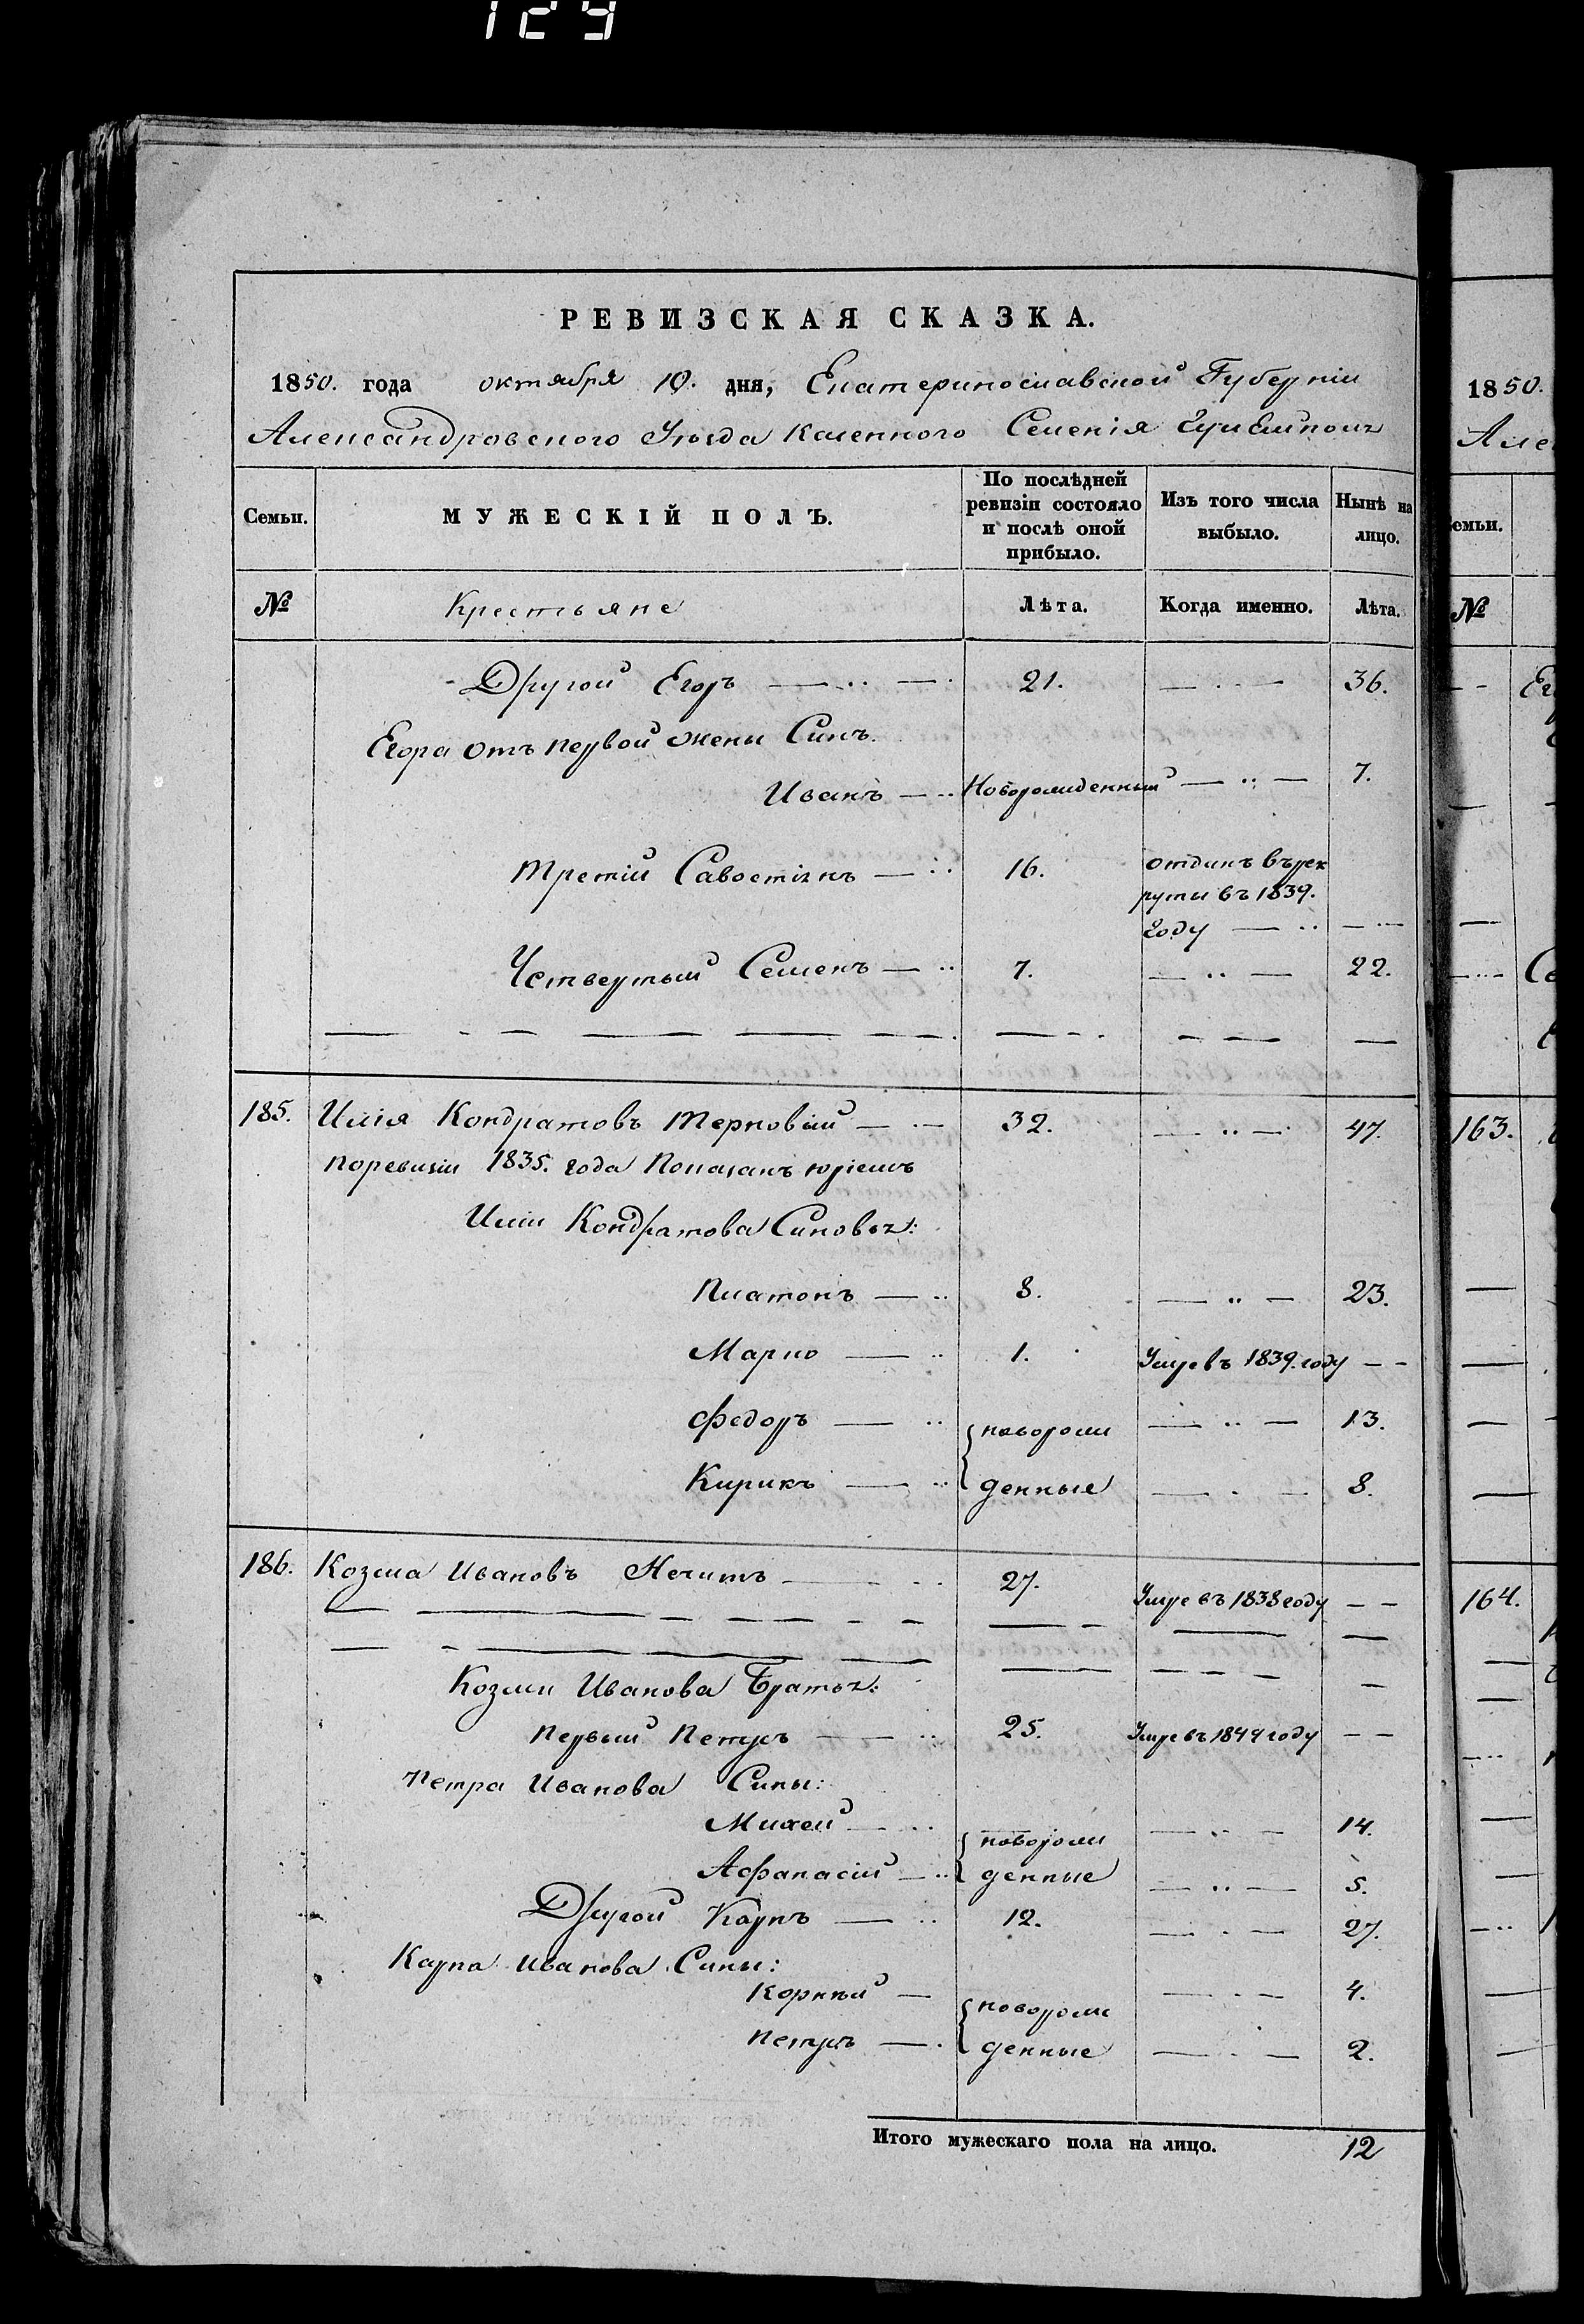 129
РЕВИЗСКАЯ СКАЗКА.
1850. года октября 10. дня, Екатеринославской Губерніи
Александровского Уѣзда казенного Селенія
Семьи.
МУЖЕСКІЙ ПОЛЪ.
По послѣдней
ревизіи состояло
и послѣ оной
прибыло.
Изъ того числа
выбыло.
Нынѣ на
лицо.
№ Крестьяне Лѣта. Когда именно. Лѣта.
Другой Егоръ 21. 36.
Егора отъ первой жены Синъ.
Иванъ Новорожденный 7.
Третій Савостіянъ 16. отданъ въ рек
руты въ 1839.
году
Четвертый Семенъ 7. 22.
185. Илія Кондратовъ Терновый 32. 47.
по ревизіи 1835. года показанъ юріемъ
Иліи Кондратова Синовья:
Платонъ 8. 23.
Марко 1. Умре въ 1839. году
Федоръ новорож 13.
Кирикъ денные 8.
186. Козма Ивановъ Нечитъ 27. Умре въ 1838 году
Козми Иванова Братья:
первый Петръ 25. Умре въ 1849 году
Петра Иванова Сины:
Михей новорож 14.
Афанасій денные 5.
Другой Карпъ 12. 27.
Карпа Иванова Сины:
Корнѣй новорож 4.
Петръ денные 2.
Итого мужескаго пола на лицо. 12
1850.
Але
емьи.
№
163.
164.